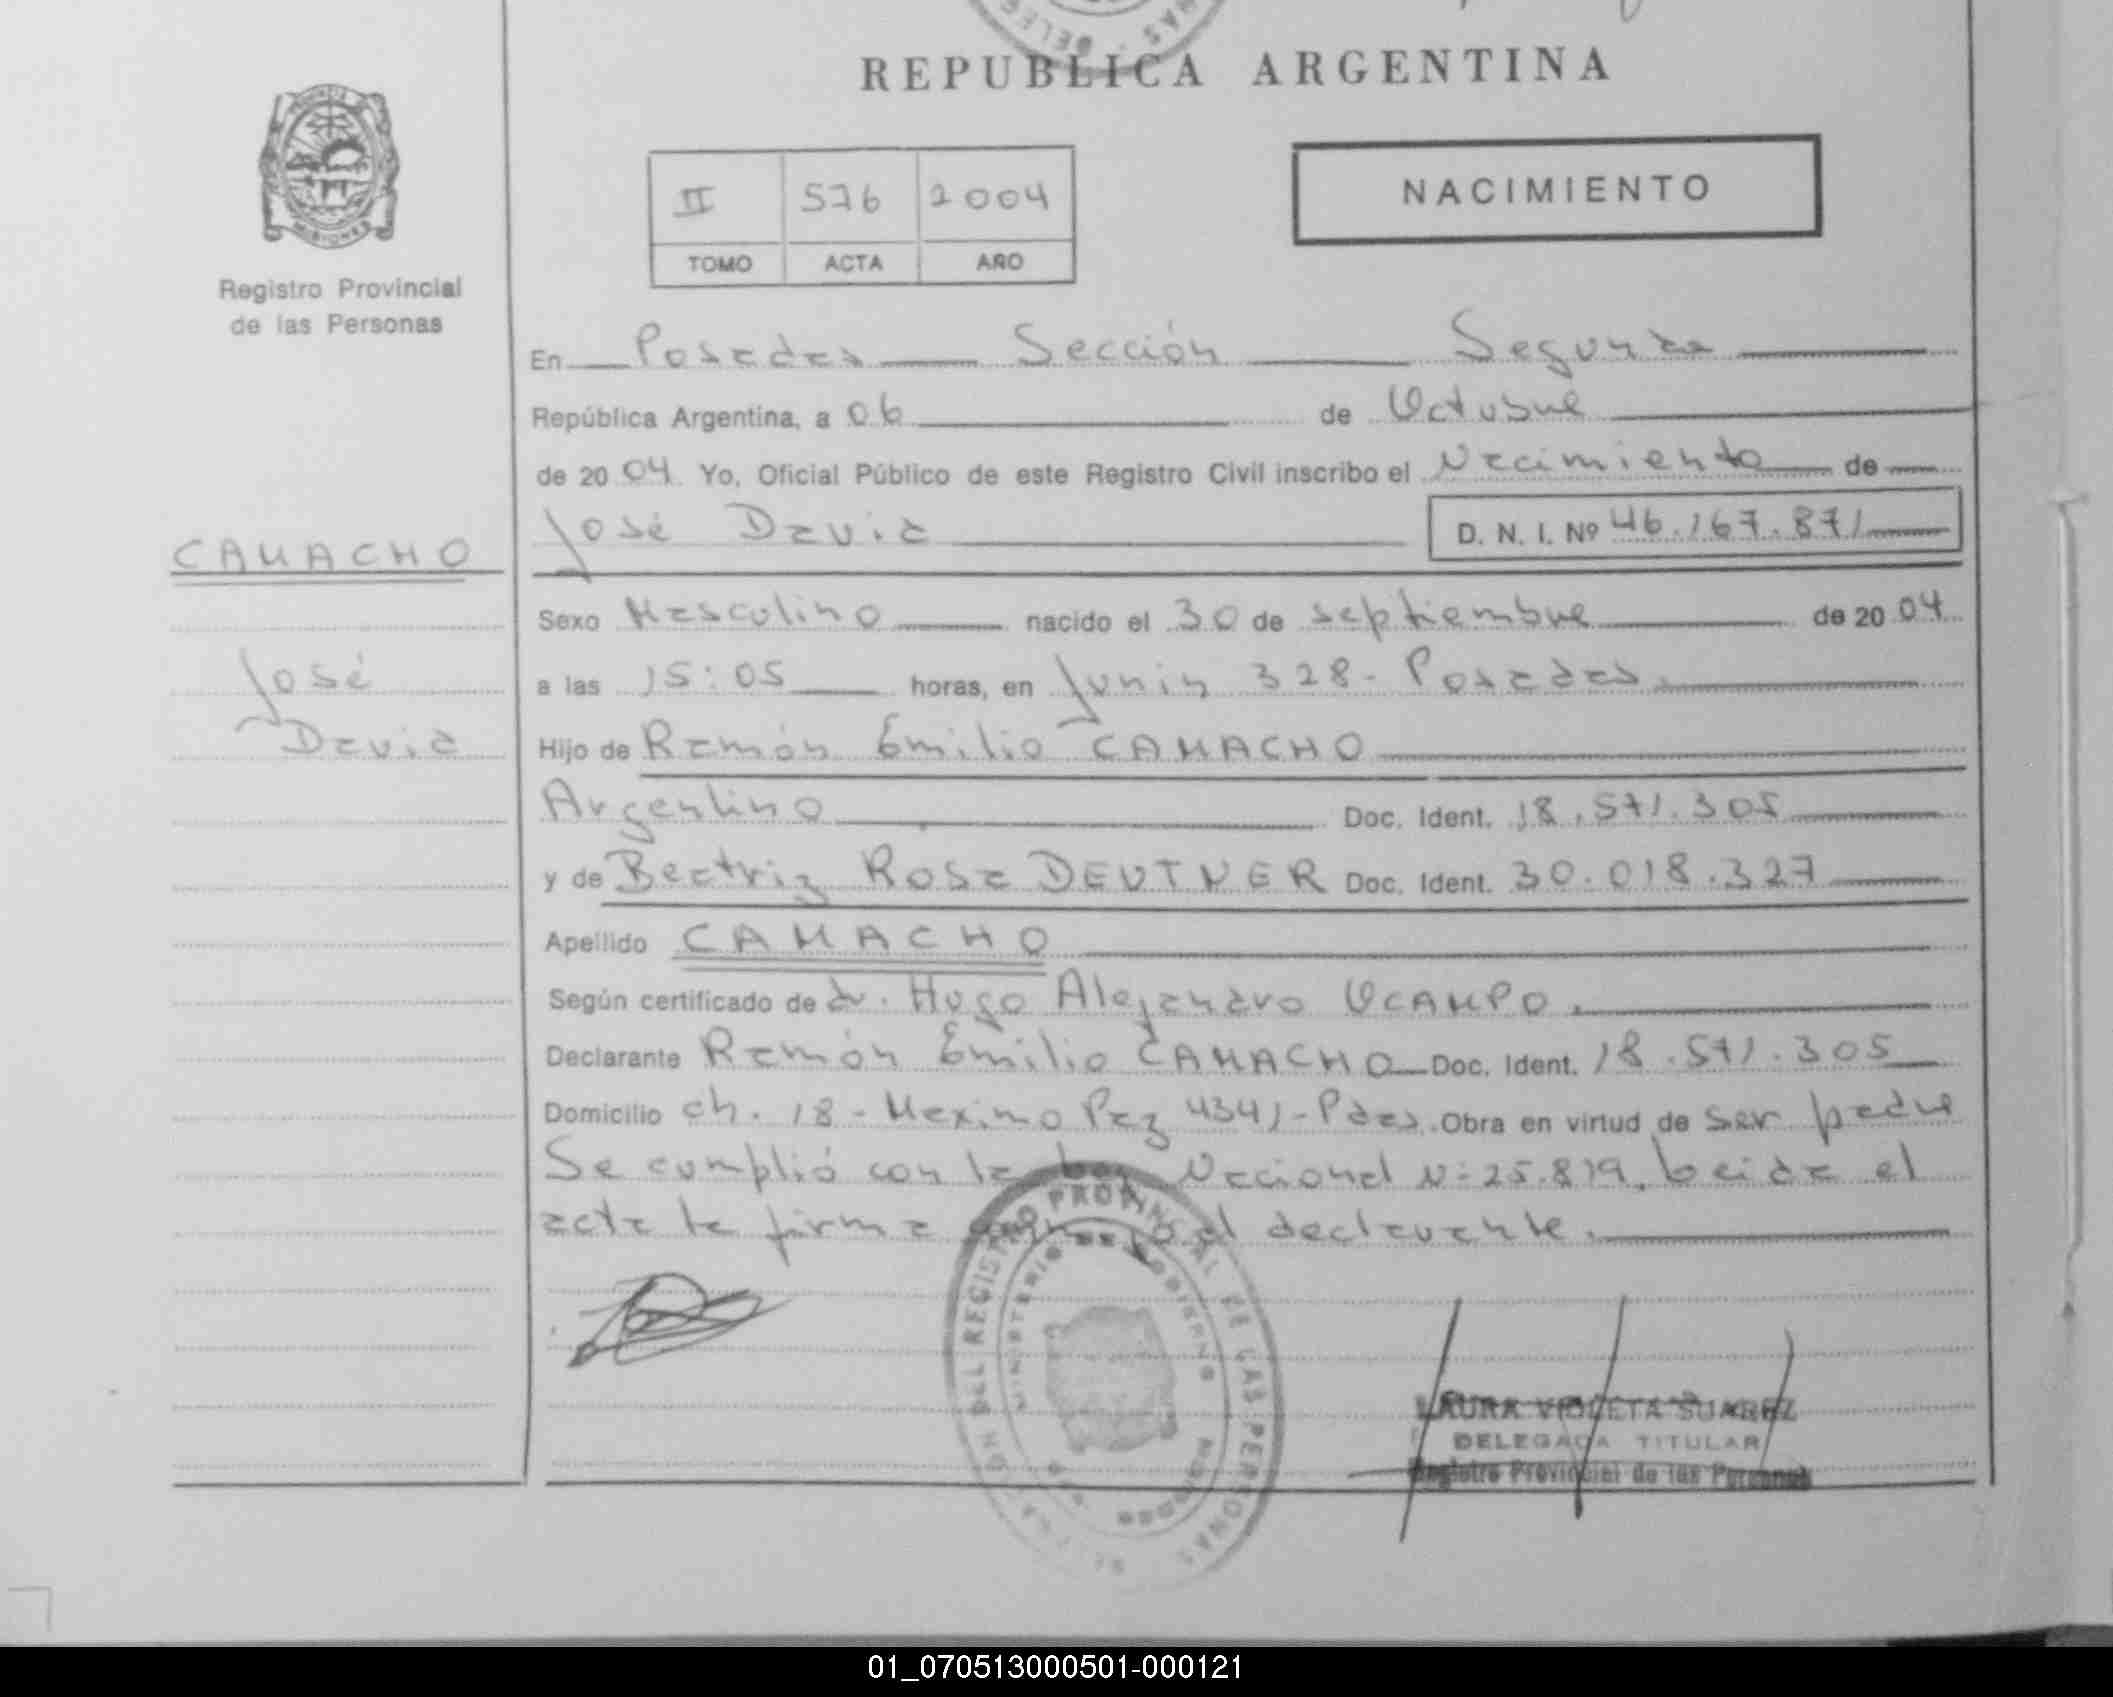 REPUBLICA ARGENTINA
PROVINCIA
MISIONES
Registro Provincial
de las Personas
II 576 2004
TOMO ACTA AÑO
NACIMIENTO
En Posadas Sección Segunda
República Argentina, a 06 de Octubre
de 2004 Yo, Oficial Público de este Registro Civil inscribo el Nacimiento de
CAMACHO
José David D. N. I. Nº 46.167.871
Sexo Masculino nacido el 30 de septiembre de 2004
José
David
a las 15:05 horas, en Junin 328 - Posadas.
Hijo de Ramón Emilio CAMACHO
Argentino Doc. Ident. 18.571.305
y de Beatriz Rosa DEUTNER Doc. Ident. 30.018.327
Apellido CAMACHO
Según certificado de dr. Hugo Alejandro OCAMPO.
Declarante Ramón Emilio CAMACHO Doc. Ident. 18.571.305
Domicilio ch. 18 - Maximo Paz 4341 - Pdas. Obra en virtud de ser padre
Se cumplió con la ley Nacional N: 25.819. Leida el
acta la firma el declarante.
DEL REGISTRO PROVINCIAL DE LAS PERSONAS
MINISTERIO DE GOBIERNO
LAURA VIOLETA SUAREZ
DELEGADA TITULAR
Registro Provincial de las Personas
01_070513000501-000121